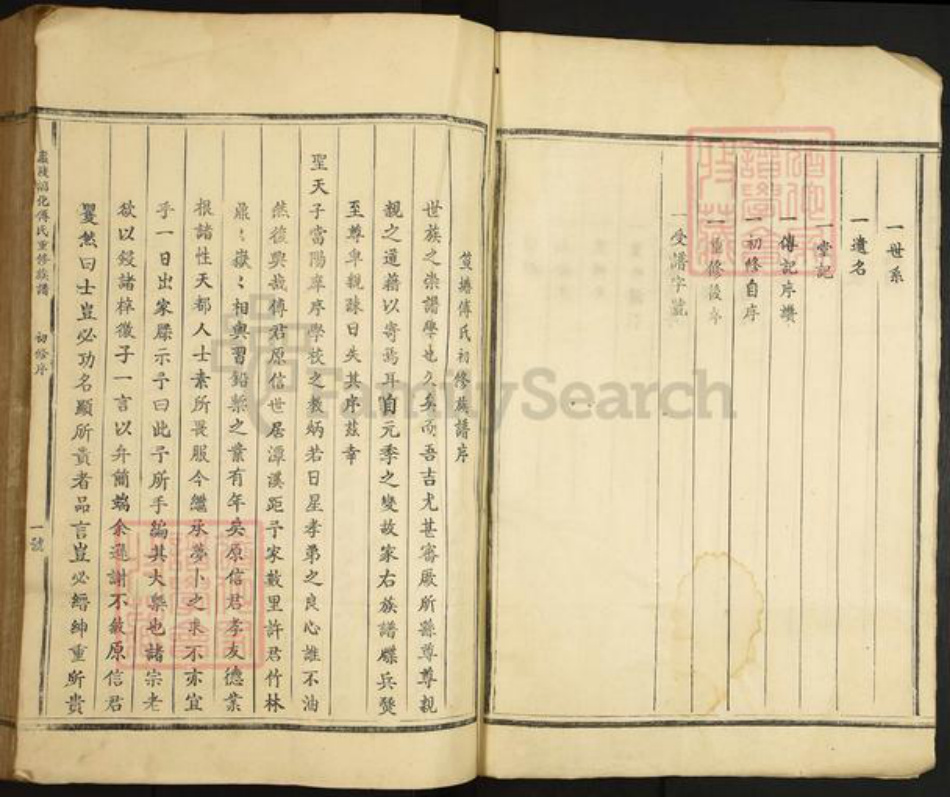 一世系
一遺名
一堂記
一傳記序讚
一初修自序
一重修後序
一受譜字號
傅氏初修族譜序
世族之崇譜學也久矣而吾吉尤甚審厥所繇尊尊親
親之道藉以寄焉耳自元季之變故家右族譜牒兵燹
至尊卑親疎日失其序茲幸
聖天子當陽庠序學校之教炳若日星孝弟之良心誰不油
然後興哉傅君原信世居潭溪距予家數里許君竹林
鼎〻嶽〻相與習鉛槧之業有年矣原信君孝友德業
根諸性天都人士素所畏服今繼承夢卜之求不亦宜
乎一日出家牒示予曰此予所手編其大槩也諸宗老
欲以鋟諸梓徵子一言以弁簡端余遜謝不敏原信君
曰士豈必功名顯所貴者品言豈必縉紳重所貴
廬陵 化傅氏重修族譜 初修序 一號
FamilySearch